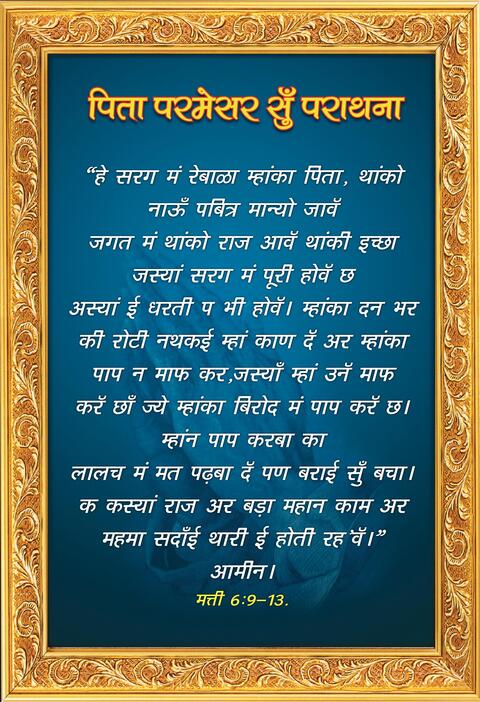 पिता परमेसर सुँ पराथना
“हे सरग मं रेबाळा म्हांका पिता, थांको
नाऊँ पबित्र मान्यो जावॅ
जगत मं थांको राज आवॅ थांकी इच्छा
जस्यां सरग मं पूरी होवॅ छ
अस्यां ई धरती प भी होवॅ। म्हांका दन भर
की रोटी नथकई म्हां काण दॅ अर म्हांका
पाप न माफ कर,जस्याँ म्हां उनॅ माफ
करॅ छाँ ज्ये म्हांका बिरोद मं पाप करॅ छ।
म्हांन पाप करबा का
लालच मं मत पढ़बा दॅ पण बराई सुँ बचा।
क कस्यां राज अर बड़ा महान काम अर
महमा सदाँई थारी ई होती रह’वॅ।”
आमीन।
मत्ती 6:9–13.